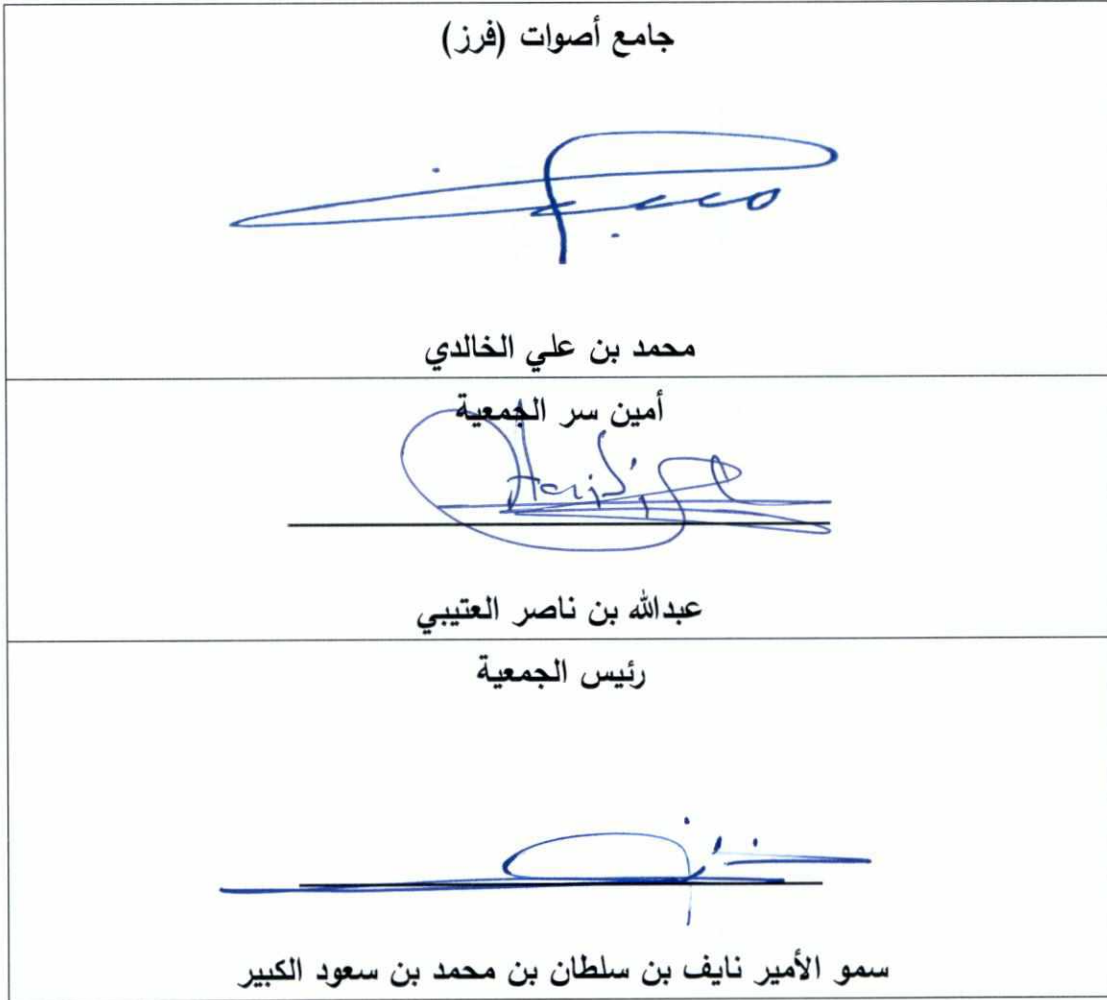 جامع أصوات (فرز)
محمد بن علي الخالدي
أمين سر الجمعية
عبدالله بن ناصر العتيبي
رئيس الجمعية
سمو الأمير نايف بن سلطان بن محمد بن سعود الكبير